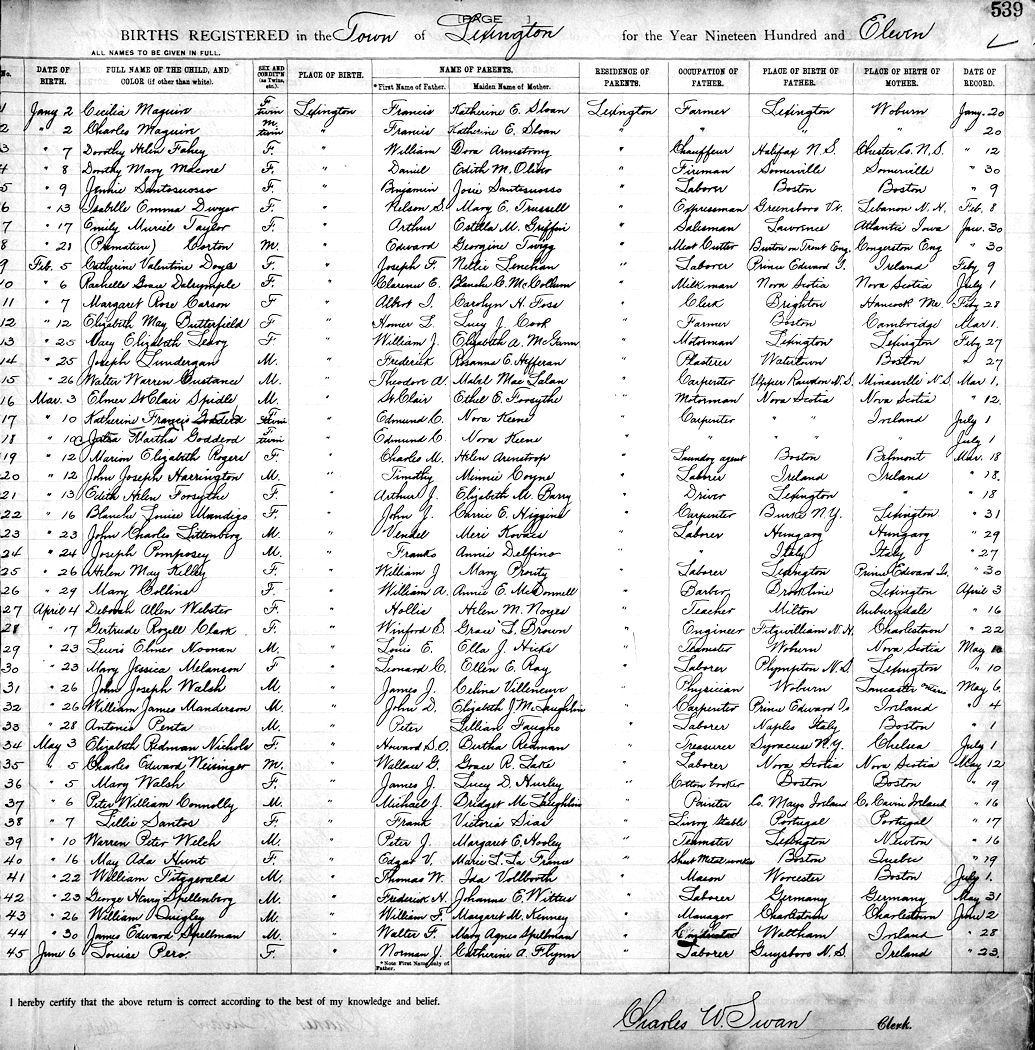 539
[PAGE ]
BIRTHS REGISTERED in the Town of Lexington for the Year Nineteen Hundred and Eleven
ALL NAMES TO BE GIVEN IN FULL.
No. DATE OF BIRTH. FULL NAME OF THE CHILD, AND COLOR (if other than white). SEX AND CONDIT'N (as Twins, etc.) PLACE OF BIRTH. NAME OF PARENTS. *First Name of Father. Maiden Name of Mother. RESIDENCE OF PARENTS. OCCUPATION OF FATHER. PLACE OF BIRTH OF FATHER. PLACE OF BIRTH OF MOTHER. DATE OF RECORD.
1 Jany 2 Cecilia Maguire F. twin Lexington Francis Katherine E. Sloan Lexington Farmer Lexington Woburn Jany. 20
2 " 2 Charles Maguire M. twin " Francis Katherine E. Sloan " " " " 20
3 " 7 Dorothy Helen Fahey F. " William Dora Armstrong " Chauffeur Halifax N.S. Chester Co. N.S. " 12
4 " 8 Dorothy Mary Macone F. " Daniel Edith M. Oliver " Fireman Somerville Somerville " 30
5 " 9 Jennie Santosuosso F. " Benjamin Josie Santosuosso " Laborer Boston Boston " 9
6 " 13 Isabelle Emma Dwyer F. " Nelson S. Mary E. Trussell " Expressman Greensboro Vt. Lebanon N.H. Feb. 8
7 " 17 Emily Muriel Taylor F. " Arthur Estella M. Griffin " Salesman Lawrence Atlantic Iowa Jan. 30
8 " 21 (Premature) Corton M. " Edward Georgine Twigg " Meat Cutter Burton on Trent Eng. Congerston Eng " 30
9 Feb. 5 Catherine Valentine Doyle F. " Joseph F. Nellie Lenehan " Laborer Prince Edward I. Ireland Feby 9
10 " 6 Rachelle Grace Dalrymple F. " Clarence E. Blanche C. McCollum " Milkman Nova Scotia Nova Scotia July 1
11 " 7 Margaret Rose Carson F. " Albert I. Carolyn H. Foss " Clerk Brighton Hancock Me Feby 28
12 " 12 Elizabeth May Butterfield F " Homer L. Lucy J. Cook " Farmer Boston Cambridge Mar 1.
13 " 25 Mary Elizabeth Leavy F " William J. Elizabeth A. McGann " Motorman Lexington Lexington Feby 27
14 " 25 Joseph Lundergan M. " Frederick Rosanna E. Hefferan " Plasterer Watertown Boston " 27
15 " 26 Walter Warren Custance M. " Theodore A. Mabel MacLalan " Carpenter Upper Rawdon N.S. Minasville N.S. Mar 1.
16 Mar. 3 Elmer St Clair Spidle M. " St Clair Ethel E. Forsythe " Motorman Nova Scotia Nova Scotia " 12.
17 " 10 Katherine Francis Goddard twin " Edmund C. Nora Keene " Carpenter " " Ireland July 1
18 " 10 Martha Goddard twin " Edmund C. Nora Keene " " " " July 1
19 " 12 Marion Elizabeth Rogers F " Charles M. Helen Armstrong " Laundry agent Boston Belmont Mar. 18
20 " 12 John Joseph Harrington M. " Timothy Minnie Coyne " Laborer Ireland Ireland " 18.
21 " 13 Edith Helen Forsythe F. " Arthur J. Elizabeth M. Barry " Driver Lexington " " 18
22 " 16 Blanche Louise Mandigo F. " John J. Carrie E. Higgins " Carpenter Burke N.Y. Lexington " 31
23 " 23 John Charles Littenberg M. " Vendel Meri Kovacs " Laborer Hungary Hungary " 29
24 " 24 Joseph Pomposey M. " Franks Annie Delfino " " Italy Italy " 27
25 " 26 Helen May Kelley F. " William J Mary Priority " Laborer Lexington Prince Edward Is. " 30
26 " 29 Mary Collins F. " William A. Annie E. McDonnell " Barber Brookline Lexington April 3
27 April 4 Deborah Allen Webster F. " Hollis Helen M. Noyes " Teacher Milton Auburndale " 16
28 " 17 Gertrude Rozell Clark F. " Winford E. Grace L. Brown " Engineer Fitzwilliam N.H. Charlestown " 22
29 " 23 Lewis Elmer Noonan M. " Louis E. Ella J. Hicks " Teamster Woburn Nova Scotia May 10
30 " 23 Mary Jessica Melanson F " Leonard C. Ellen E. Ray " Laborer Plympton N.S. Lexington " 10
31 " 26 John Joseph Walsh M. " James J. Celina Villeneuve " Physician Woburn Lancaster May 6.
32 " 26 William James Manderson M. " John D. Elizabeth J McLaughlin " Carpenter Prince Edward Is Ireland " 4
33 " 28 Antonio Penta M. " Peter Lillian Faugno " Laborer Naples Italy Boston " 1
34 May 3 Elizabeth Redman Nichols F. " Howard S.O. Bertha Redman " Treasurer Syracuse N.Y. Chelsea July 1
35 " 5 Charles Edward Weisinger M. " Wallace G. Grace R. Lake " Laborer Nova Scotia Nova Scotia May 12
36 " 5 Mary Walsh F. " James J. Lucy D. Hurley " Cotton broker Boston Boston " 19
37 " 6 Peter William Connolly M. " Michael J. Bridget McLaughlin " Painter Co. Mayo Ireland C. Cavin Ireland " 16
38 " 7 Lillie Santos F. " Frank Victoria Dias " Livery Stable Portugal Portugal " 17
39 " 10 Warren Peter Welch M. " Peter J. Margaret E. Hooley " Teamster Lexington Newton " 16
40 " 16 May Ada Hunt F. " Edgar V. Marie L. La France " Sheet Metal worker Boston Quebec " 19
41 " 22 William Fitzgerald M. " Thomas W. Ida Vollborth " Mason Worcester Boston July 1.
42 " 23 George Henry Spellenberg M. " Frederick H. Johanna E. Witters " Laborer Germany Germany May 31
43 " 26 William Quigley M. " William F. Margaret M. Kenney " Manager Charlestown Charlestown June 2
44 " 30 James Edward Spellman M. " Walter F. Mary Agnes Spellman " Waltham Ireland " 28
45 June 6 Louise Pero. F. " Norman J. Catherine A. Flynn " Laborer Guysboro N.S. Ireland " 23.
*Note First Name only of Father.
I hereby certify that the above return is correct according to the best of my knowledge and belief.
Charles W. Swan Clerk.